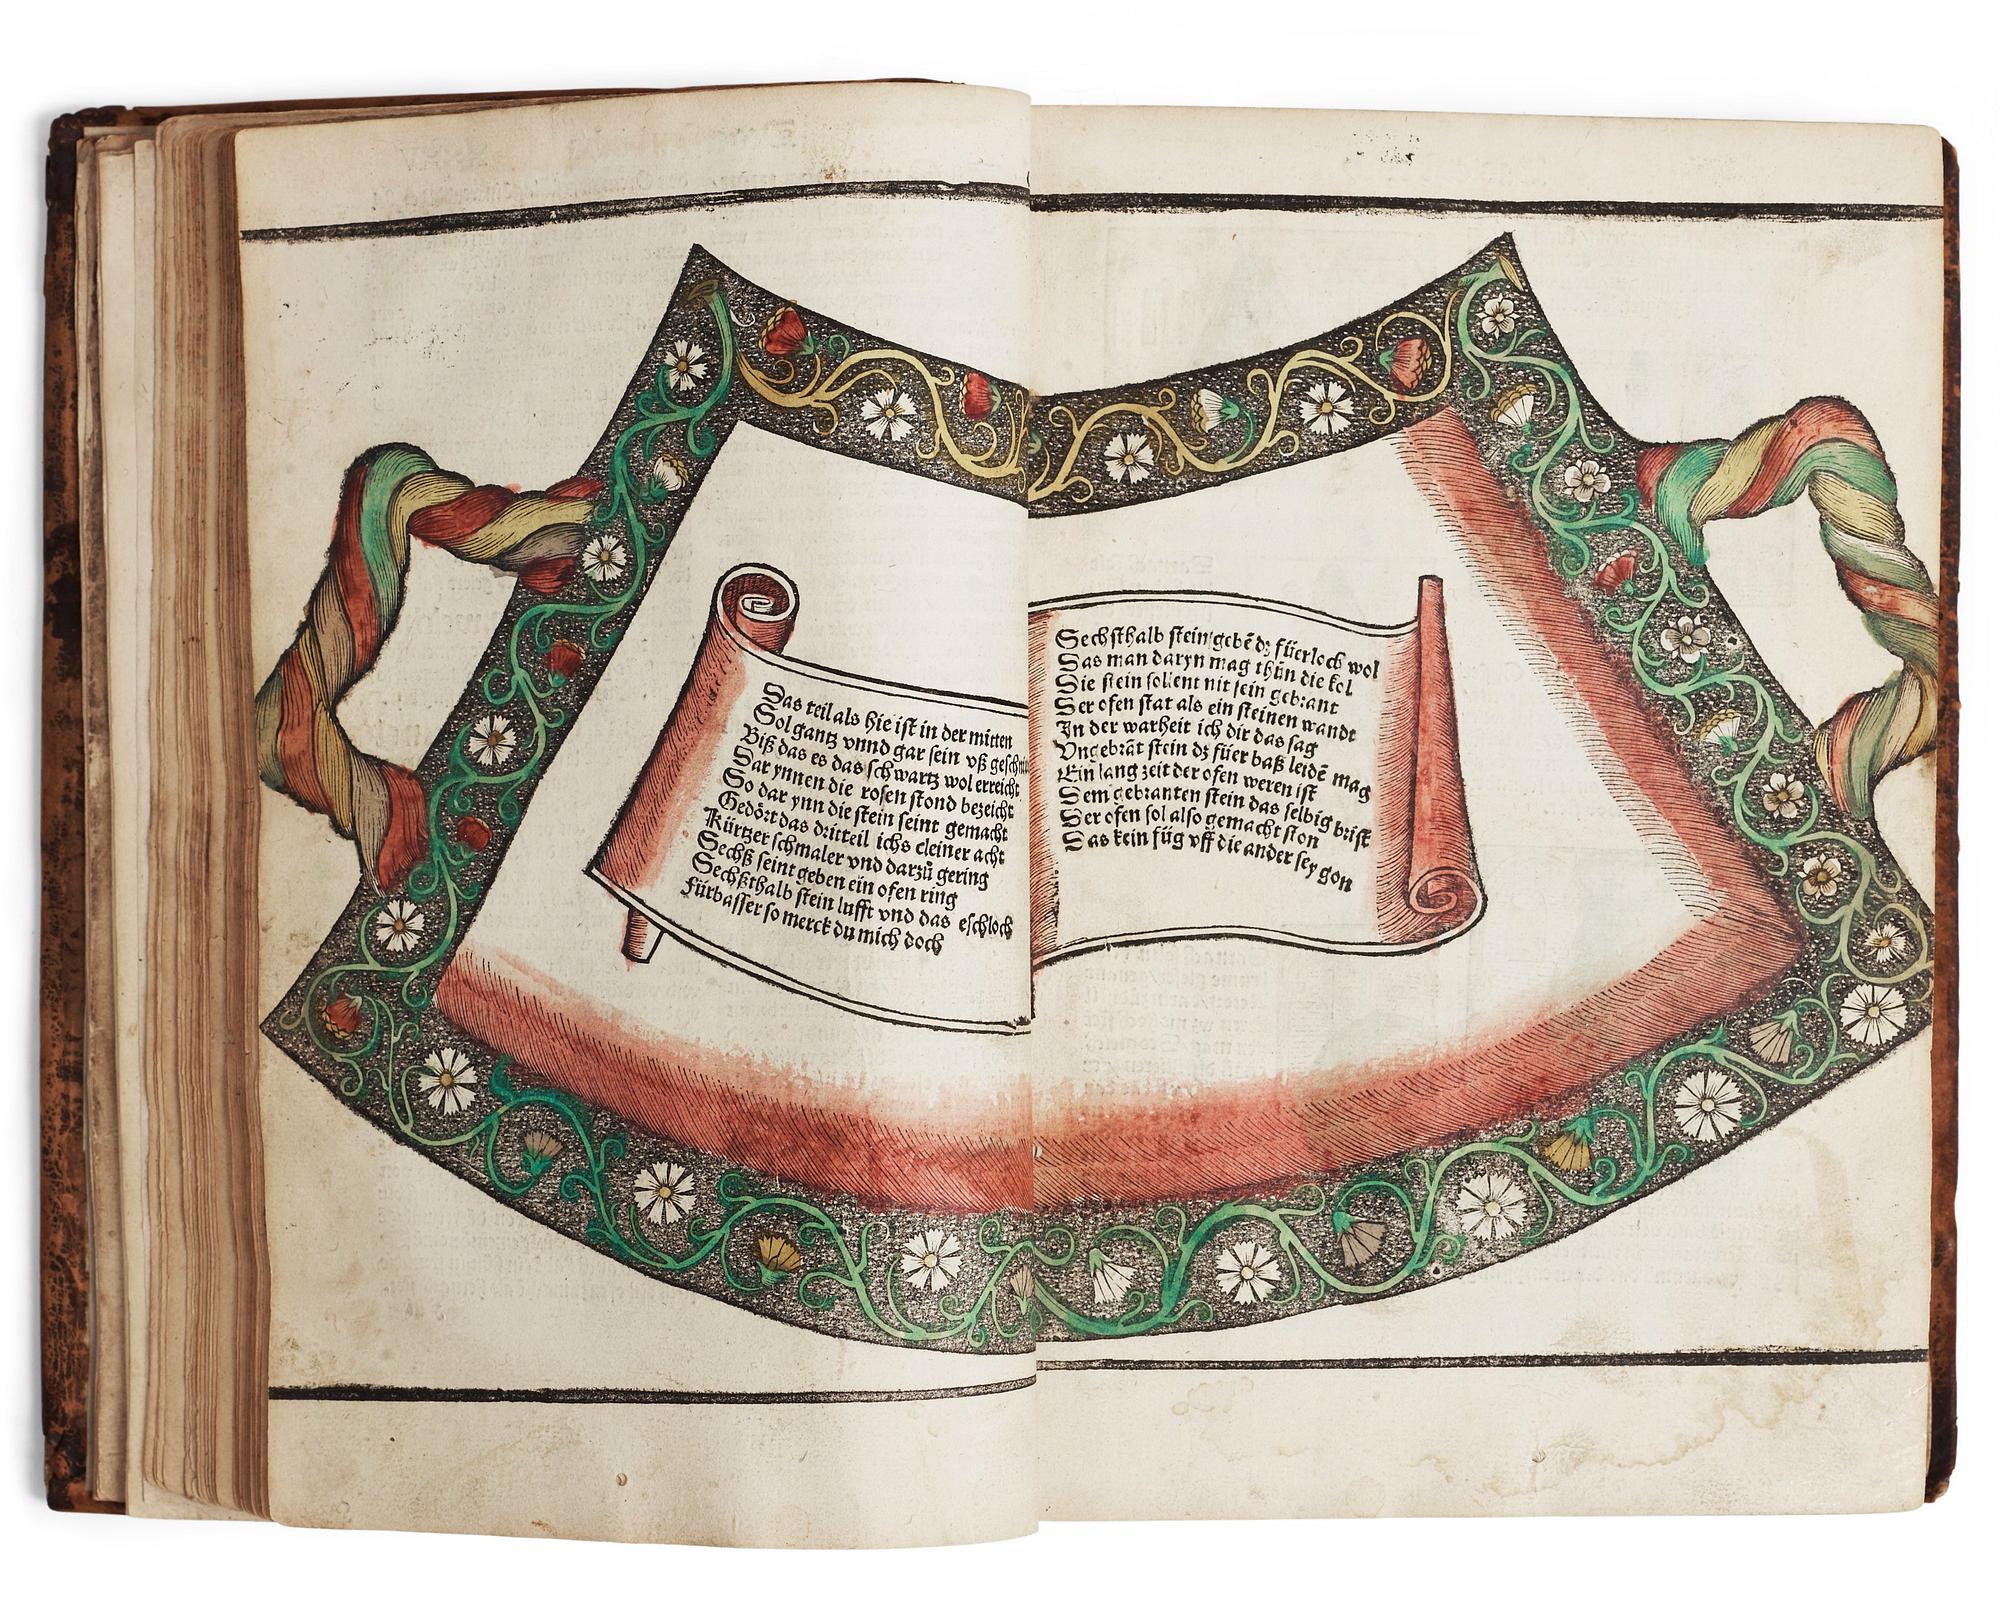 Das teil als hie ist in der mitten
Sol gantz vnnd gar sein vß geschnitt
Biß das es das schwartz wol erreicht
Dar ynnen die rosen stond bezeicht
So dar ynn die stein seint gemacht
Gedört das dritteil ichs cleiner acht
Kürtzer schmaler vnd darzů gering
Sechß seint geben ein ofen ring
Sechßthalb stein lufft vnd das eschloch
Fürbasser so merck du mich doch
Sechsthalb stein gebē dz füerloch wol
Das man daryn mag thůn die kol
Die stein sollent nit sein gebrant
Der ofen stat als ein steinen wandt
In der warheit ich dir das sag
Vngebrāt stein dz füer baß leidē mag
Ein lang zeit der ofen weren ist
Dem gebranten stein das selbig brist
Der ofen sol also gemacht ston
Das kein fůg vff die ander sey gon